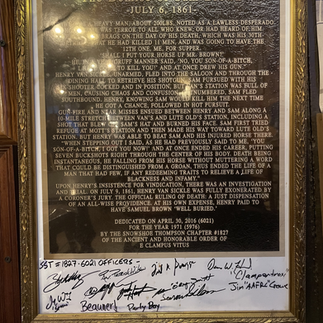 -JULY 6, 1861-
HEAVY MAN-ABOUT 200LBS, NOTED AS A LAWLESS DESPERADO.
WAS TERROR TO ALL WHO KNEW, OR HAD HEARD OF HIM.
BRAGS ON THE DAY OF HIS DEATH, WHICH WAS HIS 30TH
THAT HE HAD KILLED 10 MEN, AND WAS GOING TO HAVE THE
11TH ONE, ME, FOR SUPPER.
"SHALL I PUT YOUR HORSE UP MR. BROWN"
HE IN A GRUFF MANNER SAID, "NO, YOU SON-OF-A-BITCH,
TO KILL YOU" AND AT ONCE DREW HIS GUN."
HENRY VAN UNARMED, FLED INTO THE SALOON AND THROUGH THE
DINING HALL TO RETRIEVE HIS SHOTGUN. SAM PURSUED WITH HIS
SIX-SHOOTER, COCKED AND IN POSITION, BUT VAN'S STATION WAS FULL OF
CAUSING CHAOS AND CONFUSION. OUTNUMBERED, SAM FLED
HENRY, KNOWING SAM WOULD KILL HIM THE NEXT TIME
HE GOT A CHANCE, FOLLOWED IN HOT PURSUIT.
GUN-FIRE AND NEAR MISSES ENSUED BETWEEN HENRY AND SAM ALONG A
10-MILE STRETCH BETWEEN VAN'S AND LUTE OLD'S STATION, INCLUDING A
SHOT THAT BLEW SAM'S HAT AND BURNED HIS FACE. SAM FIRST TRIED
REFUGE AT MOTT'S STATION AND THEN MADE HIS WAY TOWARD LUTE OLD'S
STATION, BUT HENRY WAS ABLE TO BEAT SAM AND HIS INJURED HORSE THERE.
"WHEN STEPPING OUT I SAID, AS HE HAD PREVIOUSLY SAID TO ME, 'YOU
SON-OF-A-BITCH, I GOT YOU NOW!' AND AT ONCE ENDED HIS CAREER, PUTTING
SEVEN BUCKSHOTS RIGHT THROUGH THE CENTER OF HIS BODY. DEATH BEING
INSTANTANEOUS, HE FALLING FROM HIS HORSE WITHOUT MUTTERING A WORD
THAT COULD BE DISTINGUISHED FROM A GROAN, THUS ENDED THE LIFE OF A
MAN THAT HAD FEW, IF ANY REDEEMING TRAITS TO RELIEVE A LIFE OF
BLACKNESS AND INFAMY."
UPON HENRY'S INSISTENCE FOR VINDICATION, THERE WAS AN INVESTIGATION
AND TRIAL ON JULY 9, 1861, HENRY VAN SICKLE WAS FULLY EXONERATED BY
A CORONER'S JURY. THE OFFICIAL RULING OF DEATH: A JUST DISPENSATION
OF AN ALL-WISE PROVIDENCE. AT HIS OWN EXPENSE, HENRY PAID TO
HAVE SAMUEL BROWN 'WELL BURIED.'
DEDICATED ON APRIL 30, 2016 (6021)
FOR THE YEAR 1971 (5976)
BY THE SNOWSHOE THOMPSON CHAPTER #1827
OF THE ANCIENT AND HONORABLE ORDER OF
E CLAMPUS VITUS
SST #1827-6021 OFFICERS-
"Clampentroi"
Jim
Beaumer